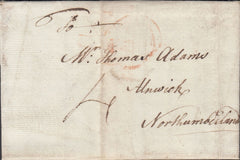 To
Mr. Thomas Adams
Alnwick
Northumberland